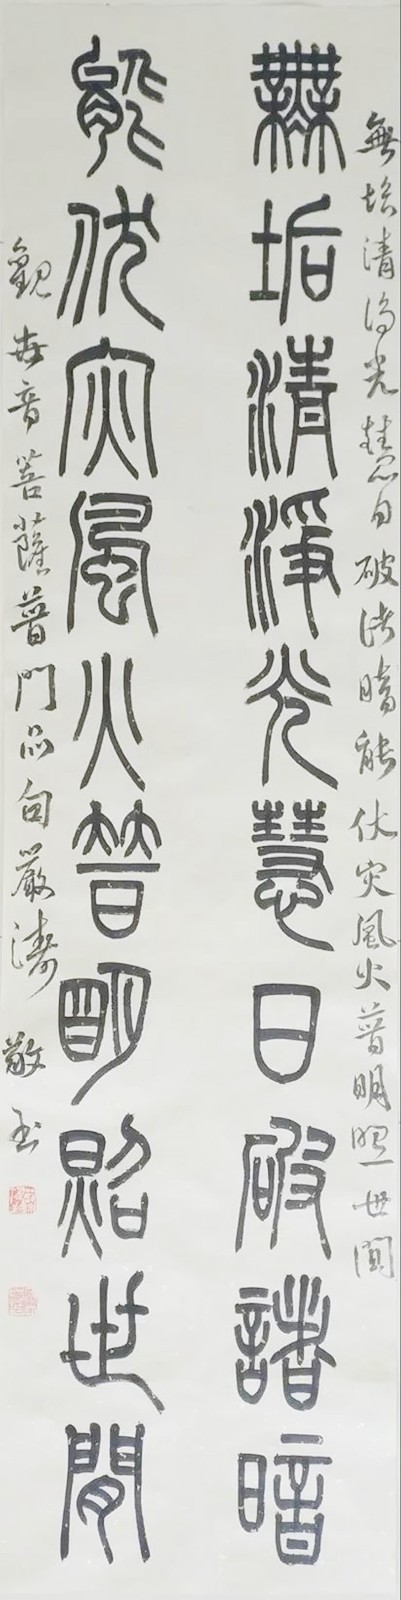 無垢清淨光慧日破諸暗能伏灾風火普明照世間
無垢清淨光慧日破諸暗
能伏灾風火普明照世間
觀世音菩薩普門品句嚴濤敬